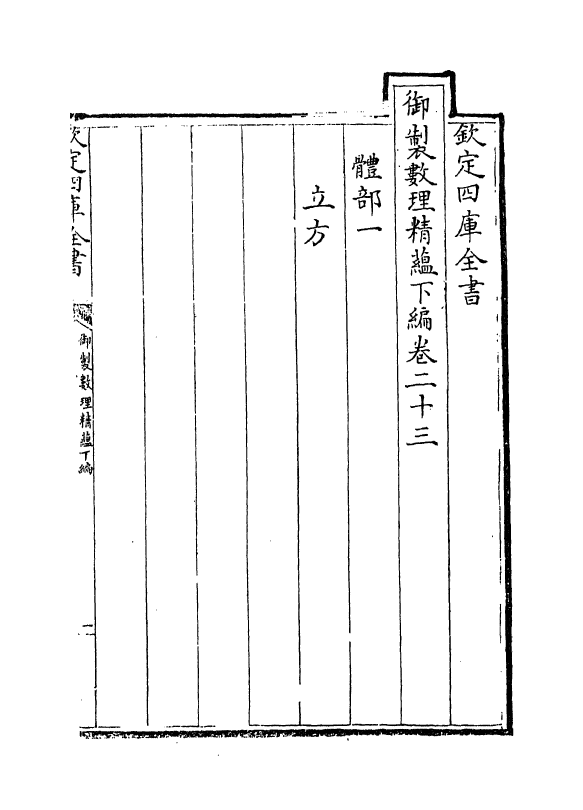 欽定四庫全書
御製數理精蘊下編卷二十三
體部一
立方
欽定四庫全書
御製數理精蘊下編